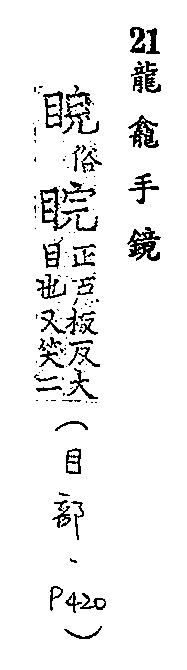 21龍龕手鏡
睌俗睆正戸板反大
目也又笑二
(目部、P420)